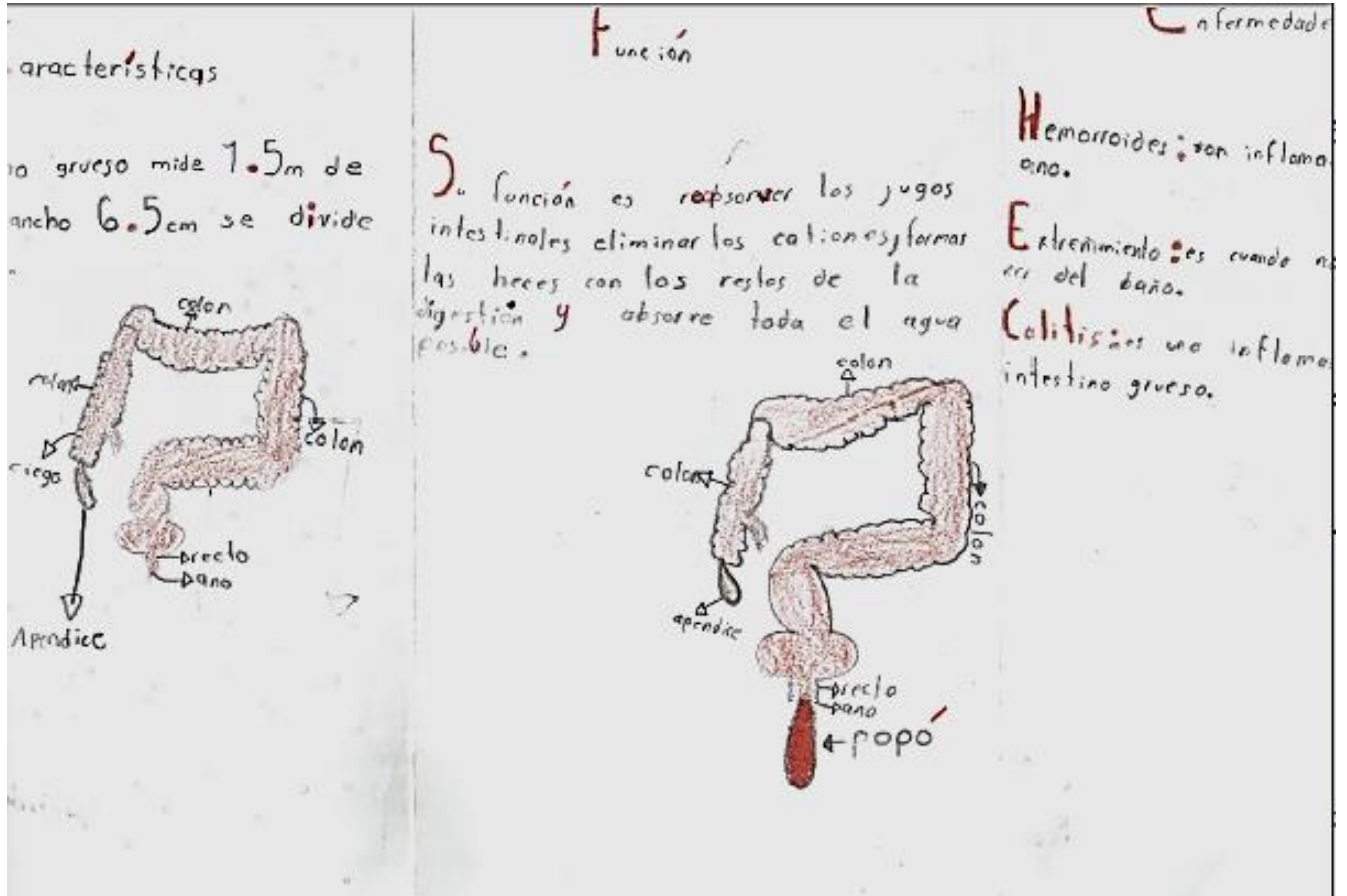 aracterísticas
grueso mide 1.5m de
ancho 6.5cm se divide
colon
colon
colon
ciego
recto
ano
Apendice
Función
Su función es los jugos
intestinales eliminar los cationes, formar
las heces con los restos de la
digestión y absorve toda el agua
posible.
colon
colon
colon
apendice
recto
ano
popó
Enfermedade
Hemorroides: son inflama
ano.
Extreñimiento: es cuando n
del baño.
Colitis: es una inflama
intestino grueso.